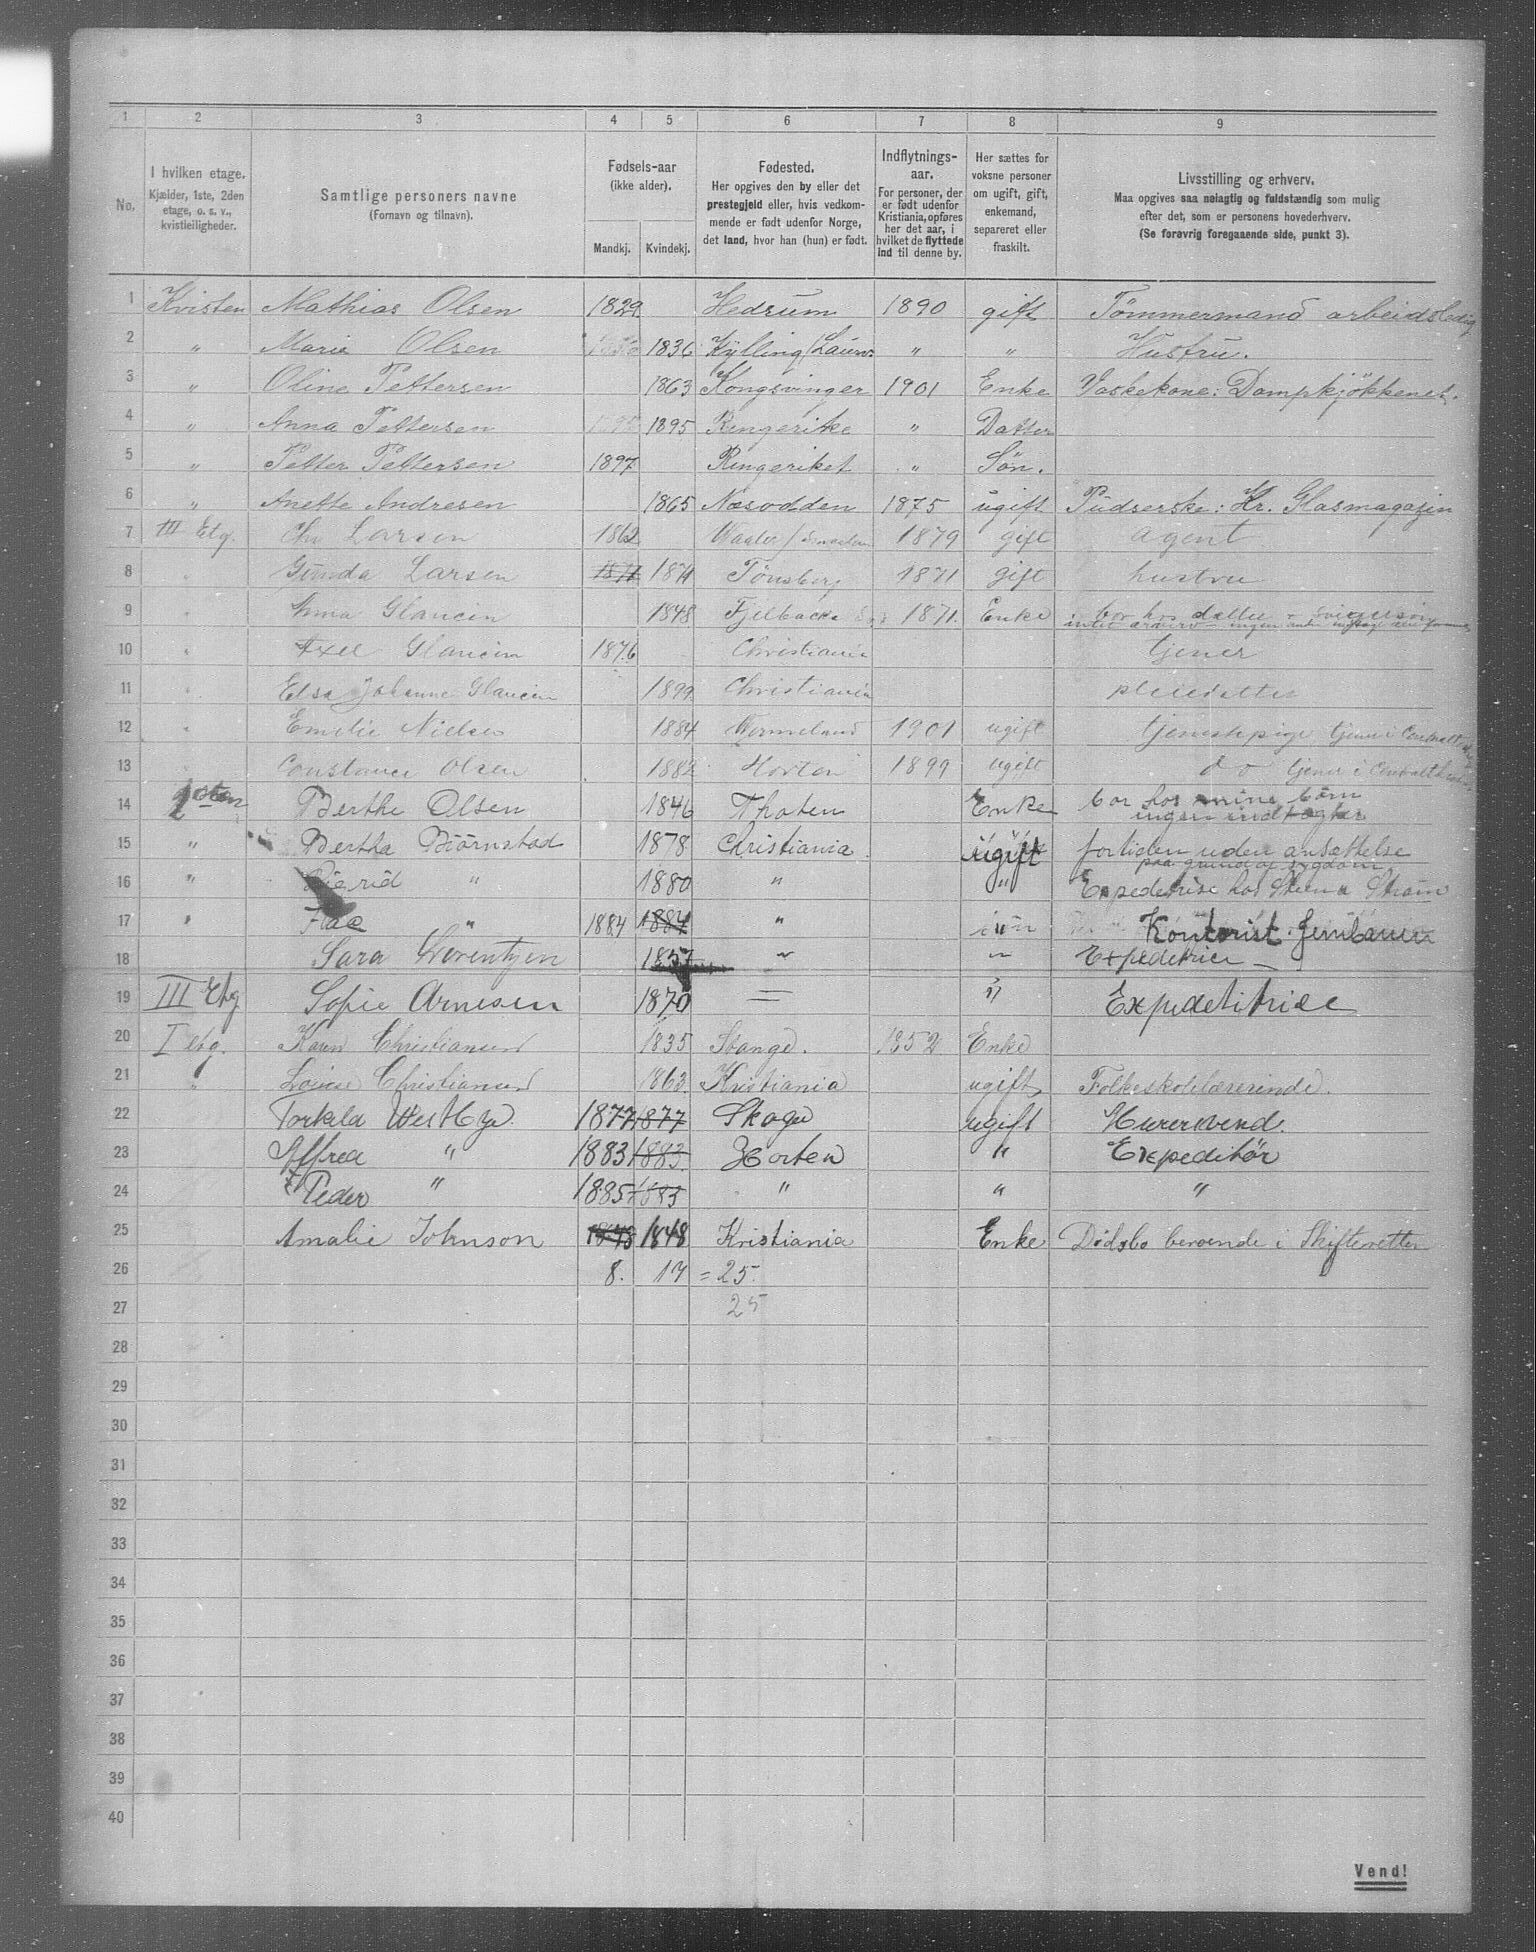 1 2 3 4 5 6 7 8 9
No.
I hvilken etage.
Kjælder, 1ste, 2den
etage, o. s. v.,
kvistleiligheder.
Samtlige personers navne
(Fornavn og tilnavn).
Fødsels-aar
(ikke alder).
Mandkj. Kvindekj.
Fødested.
Her opgives den by eller det
prestegjeld eller, hvis vedkom-
mende er født udenfor Norge,
det land, hvor han (hun) er født.
Indflytnings-
aar.
For personer, der
er født udenfor
Kristiania, opføres
her det aar, i
hvilket de flyttede
ind til denne by.
Her sættes for
voksne personer
om ugift, gift,
enkemand,
separeret eller
fraskilt.
Livsstilling og erhverv.
Maa opgives saa nøiagtig og fuldstændig som mulig
efter det, som er personens hovederhverv.
(Se forøvrig foregaaende side, punkt 3).
1 Kvisten Mathias Olsen 1829 Hedrum 1890 gift Tömmermand arbeidsledig
2 " Marie Olsen 1836 Kylling (Laurv. " " Hustru.
3 " Oline Pettersen 1863 Kongsvinger 1901 Enke Vaskekone: Dampkjökkenet.
4 " Anna Pettersen 1895 Ringerike " Datter
5 " Petter Pettersen 1897 Ringeriket " Sön.
6 " Anette Andresen 1865 Næsodden 1875 ugift Pudserske: Kr. Glasmagazin
7 III Etg. Chr Larsen 1862 Vaaler / Smaalen 1879 gift agent
8 " Gunda Larsen 1871 1871 Tønsberg 1871 gift hustru
9 " Anna Glancin 1848 Fjelbacka 1871. Enke bor hos datter
10 " Axel Glancin 1876 Christiania tjener
11 " Elsa Johanne Glancin 1899 Christiania pleiedatter
12 " Emilie Nielsen 1884 Vermeland 1901 ugift tjenestepige tjener i
13 Constance Olsen 1882 Horten 1899 ugift do tjener i
14 1sten Berthe Olsen 1846 Thoten Enke bor hos mine börn
ingen indtægter
15 " Bertha Björnstad 1878 Christiania ugift fortiden uden ansættelse
paa grund af sygdom
16 " " 1880 " " Expeditrise hos Steen & Ström
17 " " 1884 1884 " Kontorist Jernbanen
18 Sara 1857 " " Expeditrice
19 III Etg Sofie Arnesen 1870 " " Expeditrise
20 I etg. Karen Christiansen 1835 Stange. 1852 Enke
21 " Louise Christiansen 1863. Kristiania ugift Folkeskolelærerinde.
22 Torkild Westbye 1877 1877 Skoger ugift Murersvend.
23 Alfred " 1883 1883 Horten " Expeditör
24 Peder " 1885 1883 " " "
25 Amalie Johnson 1848 1848 Kristiania Enke Dödsbo beroende i Skifteretten
26 8. 17 = 25.
27 25
28
29
30
31
32
33
34
35
36
37
38
39
40
Vend!